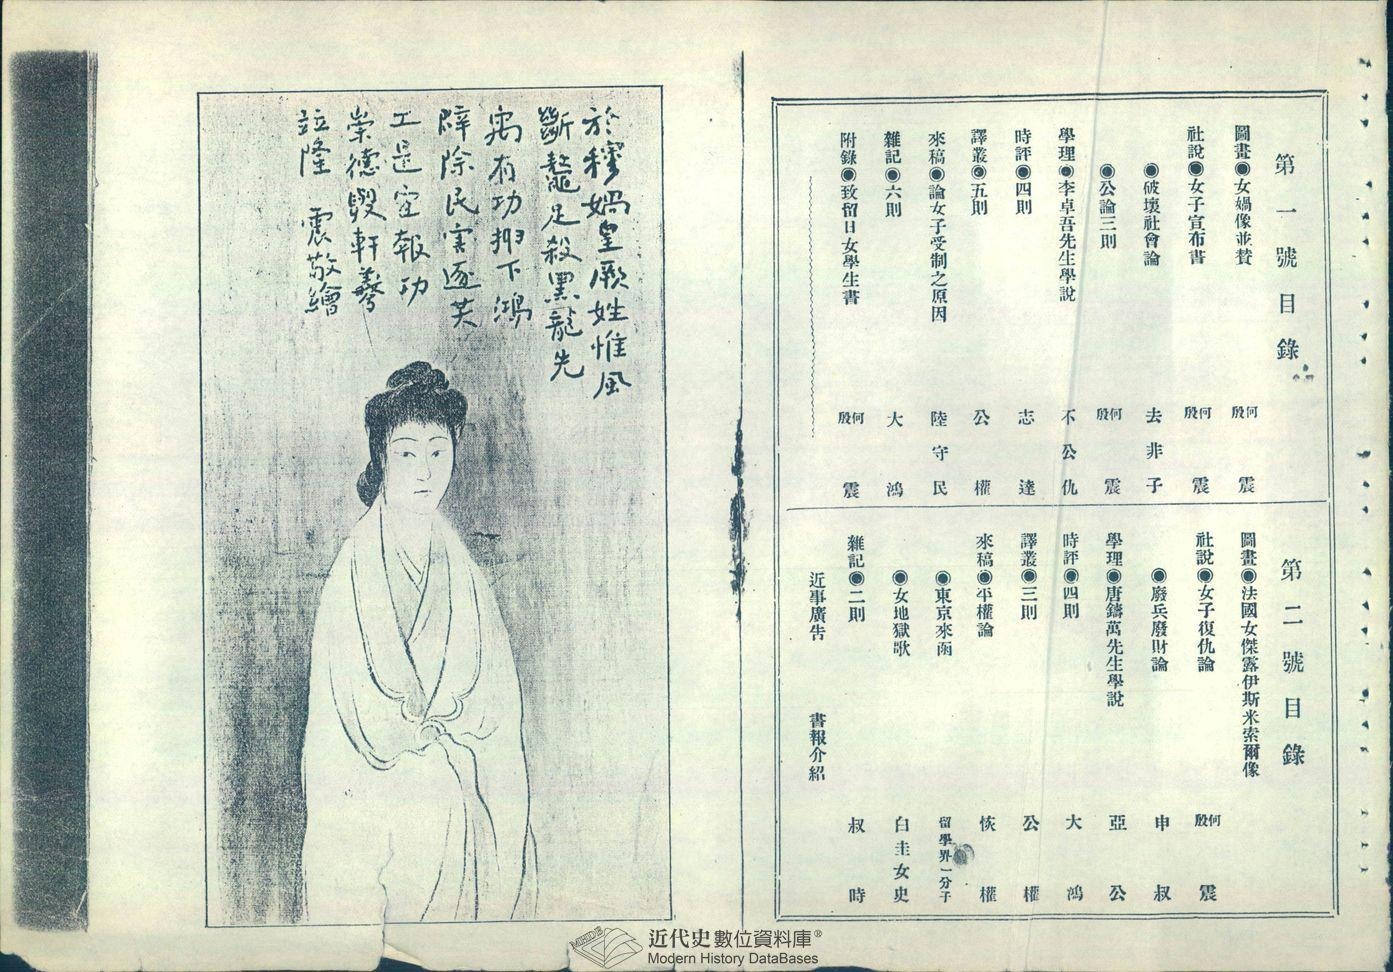 第一號目錄
圖畫◉女媧像並贊 何殷震
社說◉女子宣布書 何殷震
◉破壞社會論 去非子
◉公論三則 何殷震
學理◉李卓吾先生學說 不公仇
時評◉四則 志達
譯叢◉五則 公權
來稿◉論女子受制之原因 陸守民
雜記◉六則 大鴻
附錄◉致留日女學生書 何殷震
第二號目錄
圖畫◉法國女傑露伊斯米索爾像
社說◉女子復仇論 何殷震
◉廢兵廢財論 申叔
學理◉唐鑄萬先生學說 亞公
時評◉四則 大鴻
譯叢◉三則 公權
來稿◉平權論 恢權
◉東京來函 留學界一分子
◉女地獄歌 白圭女史
雜記◉二則 叔時
近事廣告 書報介紹
於穆媧皇厥姓惟風
斷鼇足殺黑龍先
禹有功抑下鴻
辟除民害逐共
工是宜報功
崇德毀軒羲
竝隆 震敬繪
MHDB
近代史數位資料庫®
Modern History DataBases